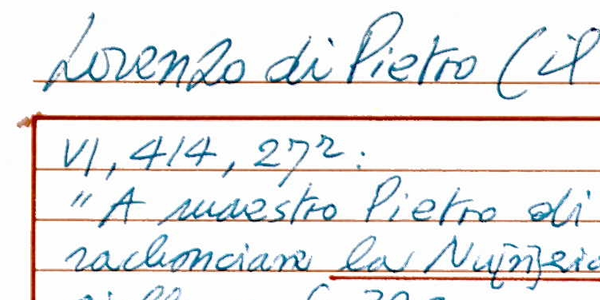 Lorenzo di Pietro (il
VI, 414, 27r:
"A maestro Pietro di
rachonciare la Nu[n]zia